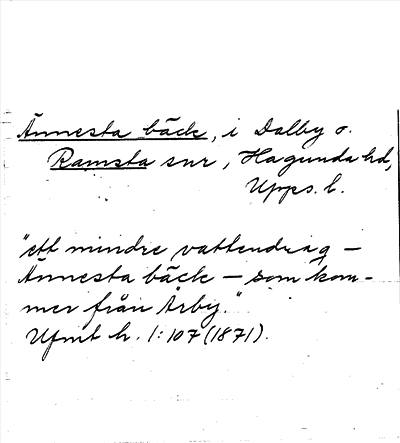 Ännesta bäck, i Dalby o.
Ramsta snr, Hagunda hd,
Upps. l.
"ett mindre vattendrag –
Ännesta bäck – som kom-
mer från Årby."
Ufmt h. 1:107 (1871).